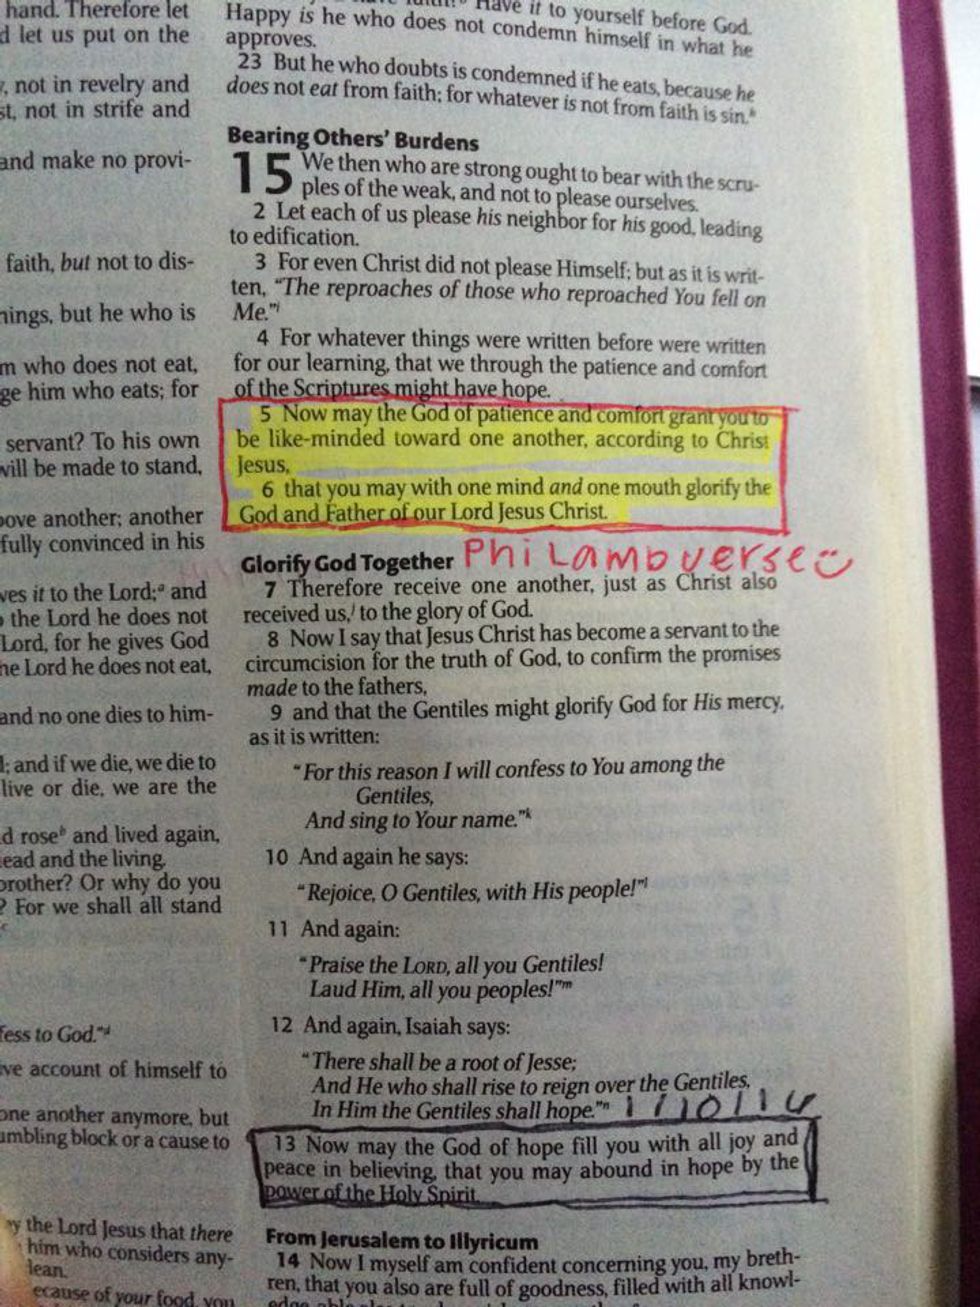 hand. Therefore let
let us put on the
not in revelry and
not in strife and
and make no provi-
faith, but not to dis-
but he who is
who does not eat,
him who eats; for
servant? To his own
will be made to stand,
above another; another
fully convinced in his
it to the Lord;ᵃ and
the Lord he does not
Lord, for he gives God
the Lord he does not eat,
and no one dies to him-
and if we die, we die to
live or die, we are the
roseᵇ and lived again,
and the living.
brother? Or why do you
? For we shall all stand
to God."ᵈ
account of himself to
one another anymore, but
block or a cause to
the Lord Jesus that there
him who considers any-
of your food, you
Have it to yourself before God.
Happy is he who does not condemn himself in what he
approves.
23 But he who doubts is condemned if he eats, because he
does not eat from faith; for whatever is not from faith is sin.ʰ
Bearing Others' Burdens
15 We then who are strong ought to bear with the scru-
ples of the weak, and not to please ourselves.
2 Let each of us please his neighbor for his good, leading
to edification.
3 For even Christ did not please Himself; but as it is writ-
ten, "The reproaches of those who reproached You fell on
Me."ⁱ
4 For whatever things were written before were written
for our learning, that we through the patience and comfort
of the Scriptures might have hope.
5 Now may the God of patience and comfort grant you to
be like-minded toward one another, according to Christ
Jesus,
6 that you may with one mind and one mouth glorify the
God and Father of our Lord Jesus Christ.
Glorify God Together Phi Lamb verse
7 Therefore receive one another, just as Christ also
received us,ʲ to the glory of God.
8 Now I say that Jesus Christ has become a servant to the
circumcision for the truth of God, to confirm the promises
made to the fathers,
9 and that the Gentiles might glorify God for His mercy,
as it is written:
"For this reason I will confess to You among the
Gentiles,
And sing to Your name."ᵏ
10 And again he says:
"Rejoice, O Gentiles, with His people!"ˡ
11 And again:
"Praise the LORD, all you Gentiles!
Laud Him, all you peoples!"ᵐ
12 And again, Isaiah says:
"There shall be a root of Jesse;
And He who shall rise to reign over the Gentiles,
In Him the Gentiles shall hope."ⁿ 1/10/14
13 Now may the God of hope fill you with all joy and
peace in believing, that you may abound in hope by the
power of the Holy Spirit.
From Jerusalem to Illyricum
14 Now I myself am confident concerning you, my breth-
ren, that you also are full of goodness, filled with all knowl-